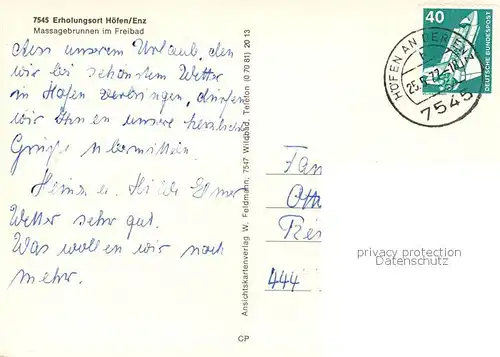 7545 Erholungsort Höfen/Enz
Massagebrunnen im Freibad
Aus unserem Urlaub, den
wir bei schönstem Wetter
in Höfen verbringen, dürfen
wir Ihnen unsere herzlichen
Grüße übermitteln.
Heinz u. Hilde
Wetter sehr gut.
Was wollen wir noch
mehr.
Ansichtskartenverlag W. Feldmann, 7547 Wildbad, Telefon (0 70 81) 20 13
CP
40
DEUTSCHE BUNDESPOST
HÖFEN AN DER ENZ
7545
Fam
Otto
444
privacy protection
Datenschutz